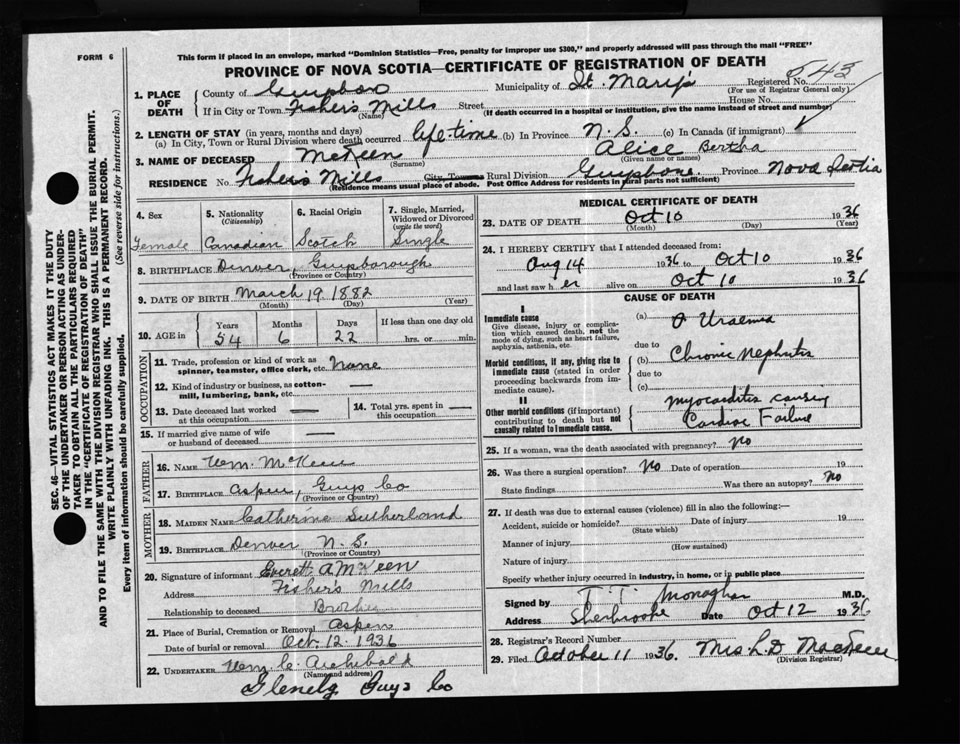 FORM 6
This form if placed in an envelope, marked "Dominion Statistics—Free, penalty for improper use $300," and properly addressed will pass through the mail "FREE"
PROVINCE OF NOVA SCOTIA—CERTIFICATE OF REGISTRATION OF DEATH
1. PLACE OF DEATH
County of Municipality of St. Mary's Registered No. 843
(For use of Registrar General only)
If in City or Town Fisher's Mills Street House No.
(Name) (If death occurred in a hospital or institution, give the name instead of street and number)
2. LENGTH OF STAY (in years, months and days)
(a) In City, Town or Rural Division where death occurred life-time (b) In Province N.S. (c) In Canada (if immigrant)
3. NAME OF DECEASED McKeen Alice Bertha
(Surname) (Given name or names)
RESIDENCE No. Fisher's Mills City, Town or Rural Division Province Nova Scotia
(Residence means usual place of abode. Post Office Address for residents in rural parts not sufficient)
4. Sex
Female
5. Nationality
(Citizenship)
Canadian
6. Racial Origin
Scotch
7. Single, Married, Widowed or Divorced
(write the word)
Single
8. BIRTHPLACE Denver, Guysborough
(Province or Country)
9. DATE OF BIRTH March 19 1882
(Month) (Day) (Year)
10. AGE in
Years Months Days If less than one day old
54 6 22 hrs. or min.
OCCUPATION
11. Trade, profession or kind of work as
spinner, teamster, office clerk, etc. None
12. Kind of industry or business, as cotton-
mill, lumbering, bank, etc.
13. Date deceased last worked
at this occupation
14. Total yrs. spent in
this occupation
15. If married give name of wife
or husband of deceased
FATHER
16. NAME Wm. McKeen
17. BIRTHPLACE Aspen, Guys Co
(Province or Country)
MOTHER
18. MAIDEN NAME Catherine Sutherland
19. BIRTHPLACE Denver N.S.
(Province or Country)
20. Signature of informant Everett A McKeen
Address Fisher's Mills
Relationship to deceased Brother
21. Place of Burial, Cremation or Removal Aspen
Date of burial or removal Oct. 12. 1936
22. UNDERTAKER Wm. C. Archibald
(Name and address)
Glenelg Guys Co
MEDICAL CERTIFICATE OF DEATH
23. DATE OF DEATH Oct 10 1936
(Month) (Day) (Year)
24. I HEREBY CERTIFY that I attended deceased from:
Aug 14 1936 to Oct 10 1936
and last saw her alive on Oct 10 1936
CAUSE OF DEATH
I
Immediate cause
Give disease, injury or complica-
tion which caused death, not the
mode of dying, such as heart failure,
asphyxia, asthenia, etc.
(a) Uraemia
due to
Morbid conditions, if any, giving rise to
immediate cause (stated in order
proceeding backwards from im-
mediate cause).
(b) Chronic Nephritis
due to
(c)
II
Other morbid conditions (if important)
contributing to death but not
causally related to immediate cause.
Myocarditis causing
Cardiac Failure
25. If a woman, was the death associated with pregnancy? no
26. Was there a surgical operation? No Date of operation 19
State findings Was there an autopsy? no
27. If death was due to external causes (violence) fill in also the following:—
Accident, suicide or homicide? Date of injury 19
(State which)
Manner of injury
(How sustained)
Nature of injury
Specify whether injury occurred in industry, in home, or in public place
Signed by Monaghan M.D.
Address Sherbrooke Date Oct 12 1936
28. Registrar's Record Number
29. Filed October 11 1936. Mrs L.D MacKeen
(Division Registrar)
SEC. 46—VITAL STATISTICS ACT MAKES IT THE DUTY
OF THE UNDERTAKER OR PERSON ACTING AS UNDER-
TAKER TO OBTAIN ALL THE PARTICULARS REQUIRED
IN THE "CERTIFICATE OF REGISTRATION OF DEATH"
AND TO FILE THE SAME WITH THE DIVISION REGISTRAR WHO SHALL ISSUE THE BURIAL PERMIT.
WRITE PLAINLY WITH UNFADING INK. THIS IS A PERMANENT RECORD.
Every item of information should be carefully supplied. (See reverse side for instructions.)